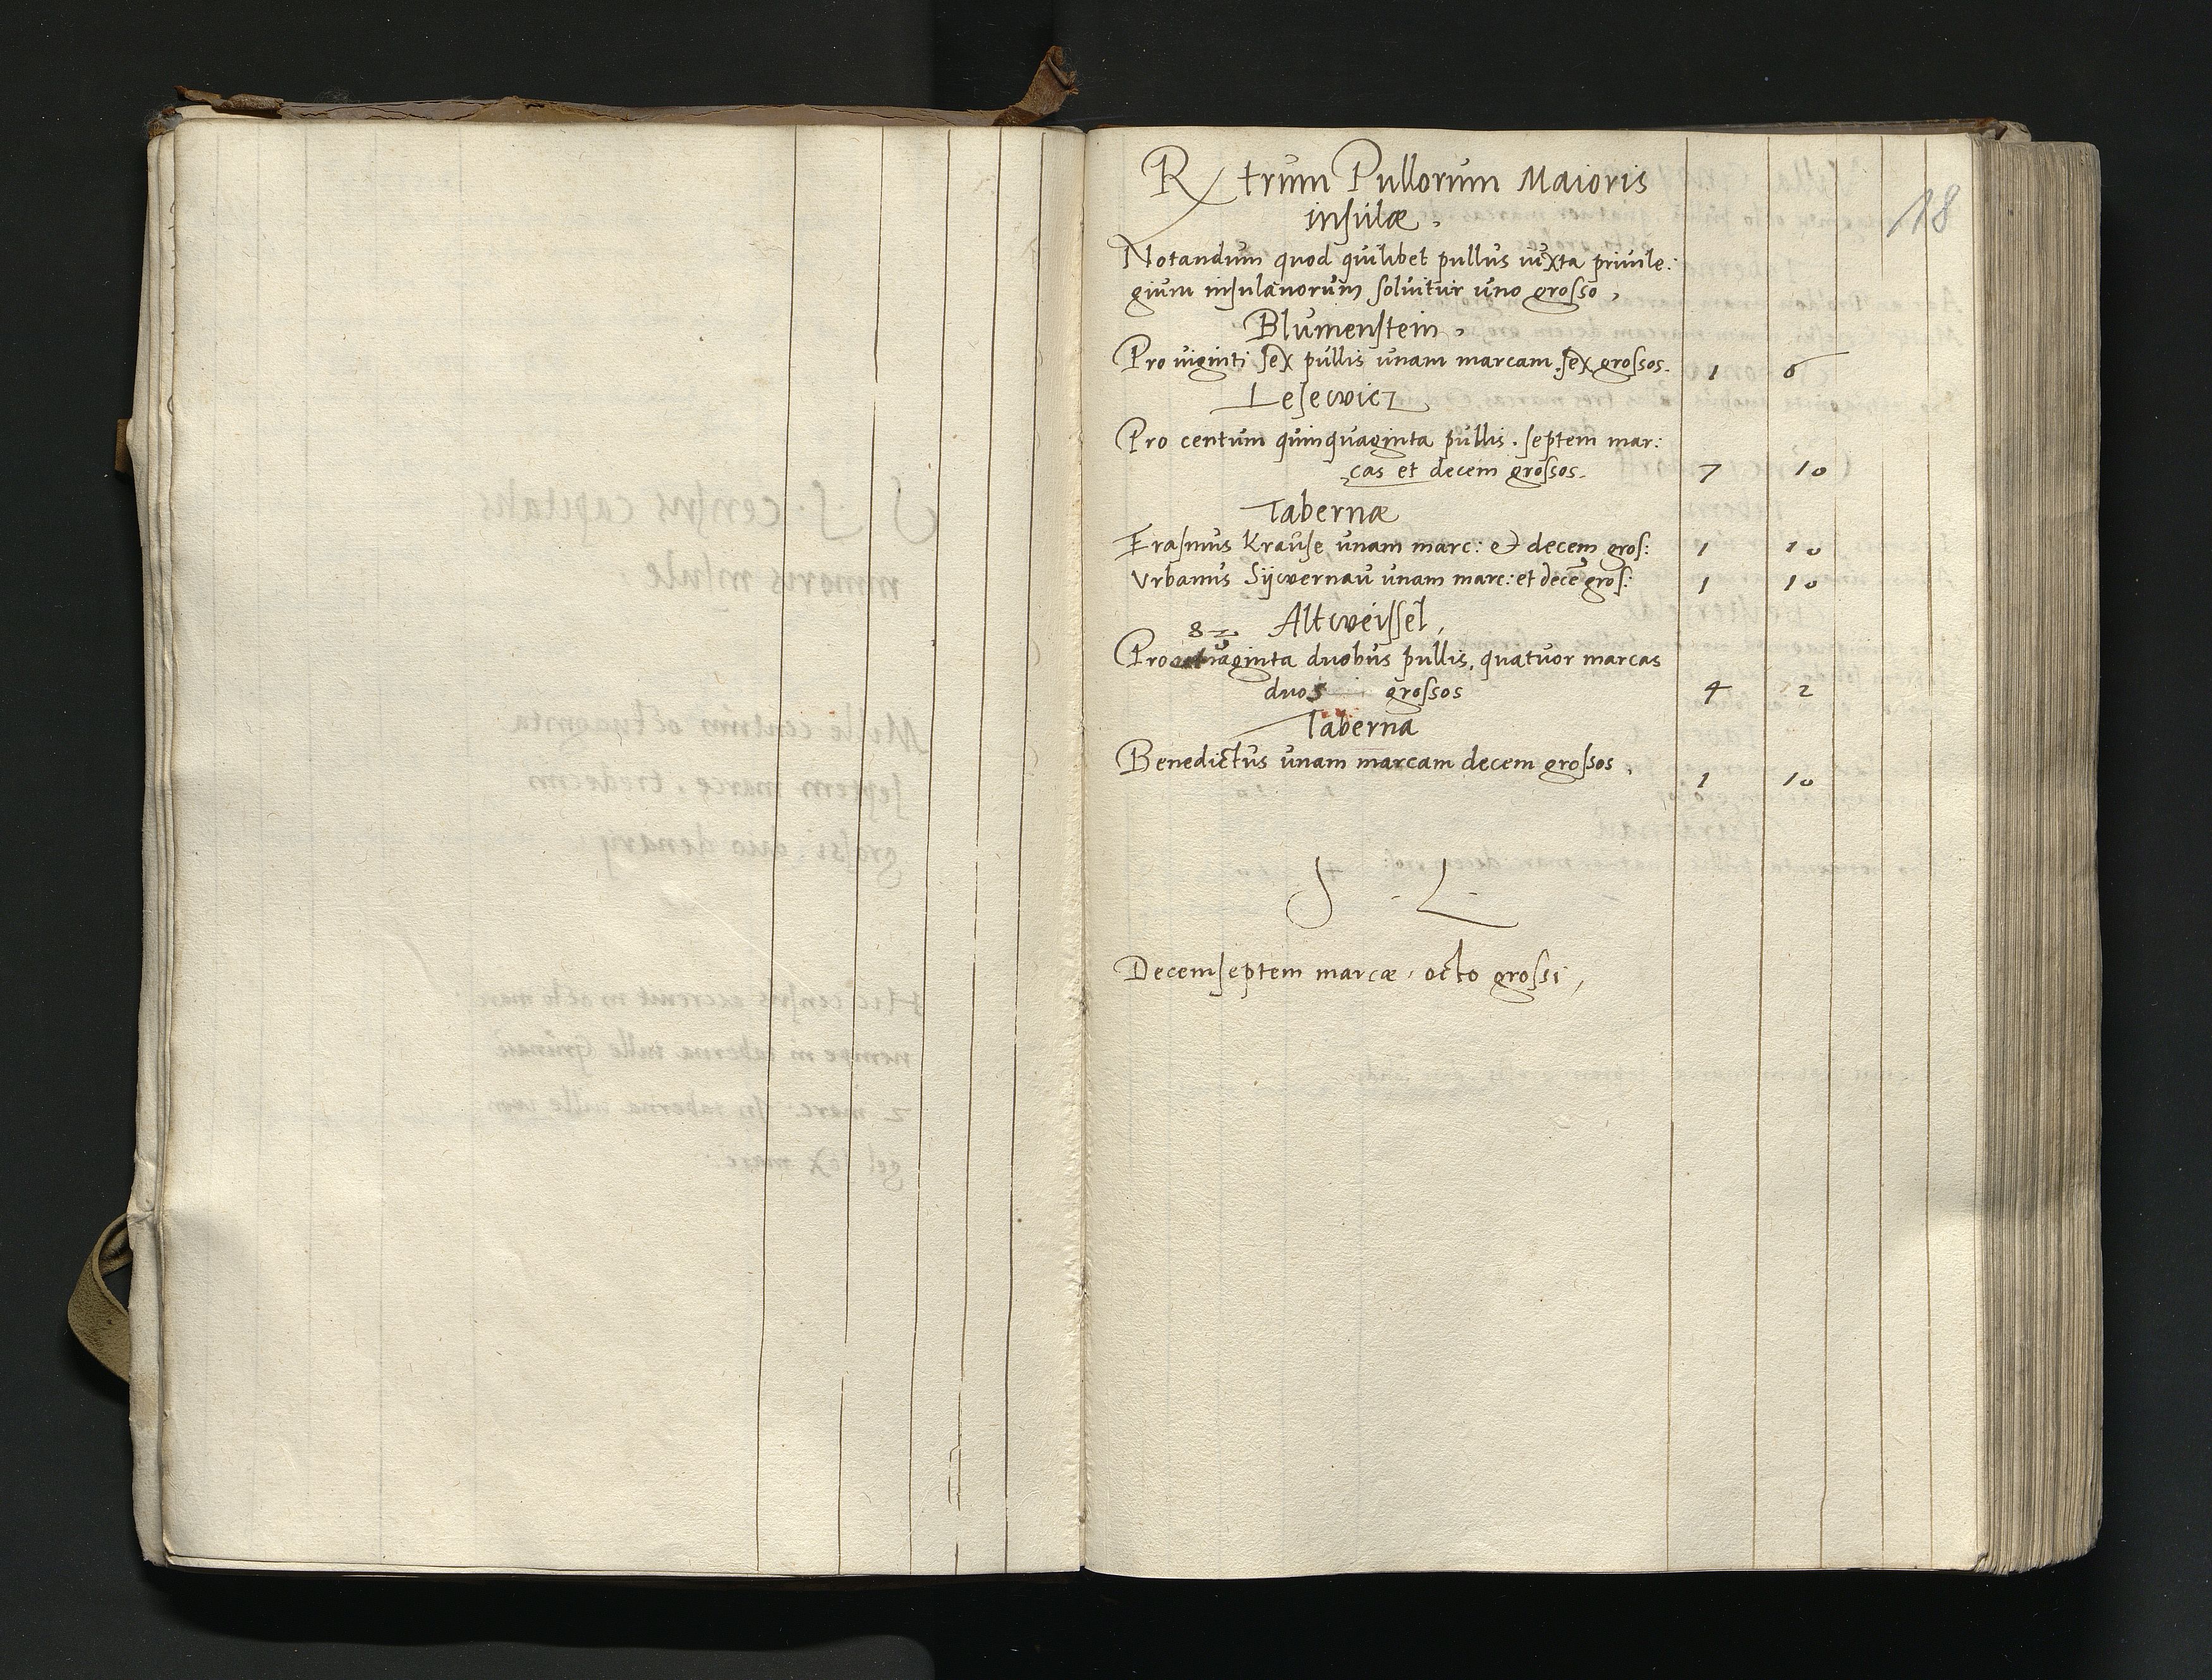 18
Rtrum Pullorum Maioris
insulæ,
Notandum quod quilibet pullus iuxta priuile:
gium insulanorum soluitur uno grosso,
Blumenstein,
Pro uiginti sex pullis unam marcam sex grossos. 1 6
Lesewicz
Pro centum quinquaginta pullis. septem mar:
cas et decem grossos. 7 10
Tabernæ
Erasmus Krause unam marc: et decem gros: 1 10
Vrbanus Sÿwernau unam marc: et decē gros: 1 10
Altweissel,
82
Pro aginta duobus pullis, quatuor marcas
duos grossos 4 2
Taberna
Benedictus unam marcam decem grossos, 1 10
S . L
Decemseptem marcæ, octo grossi,